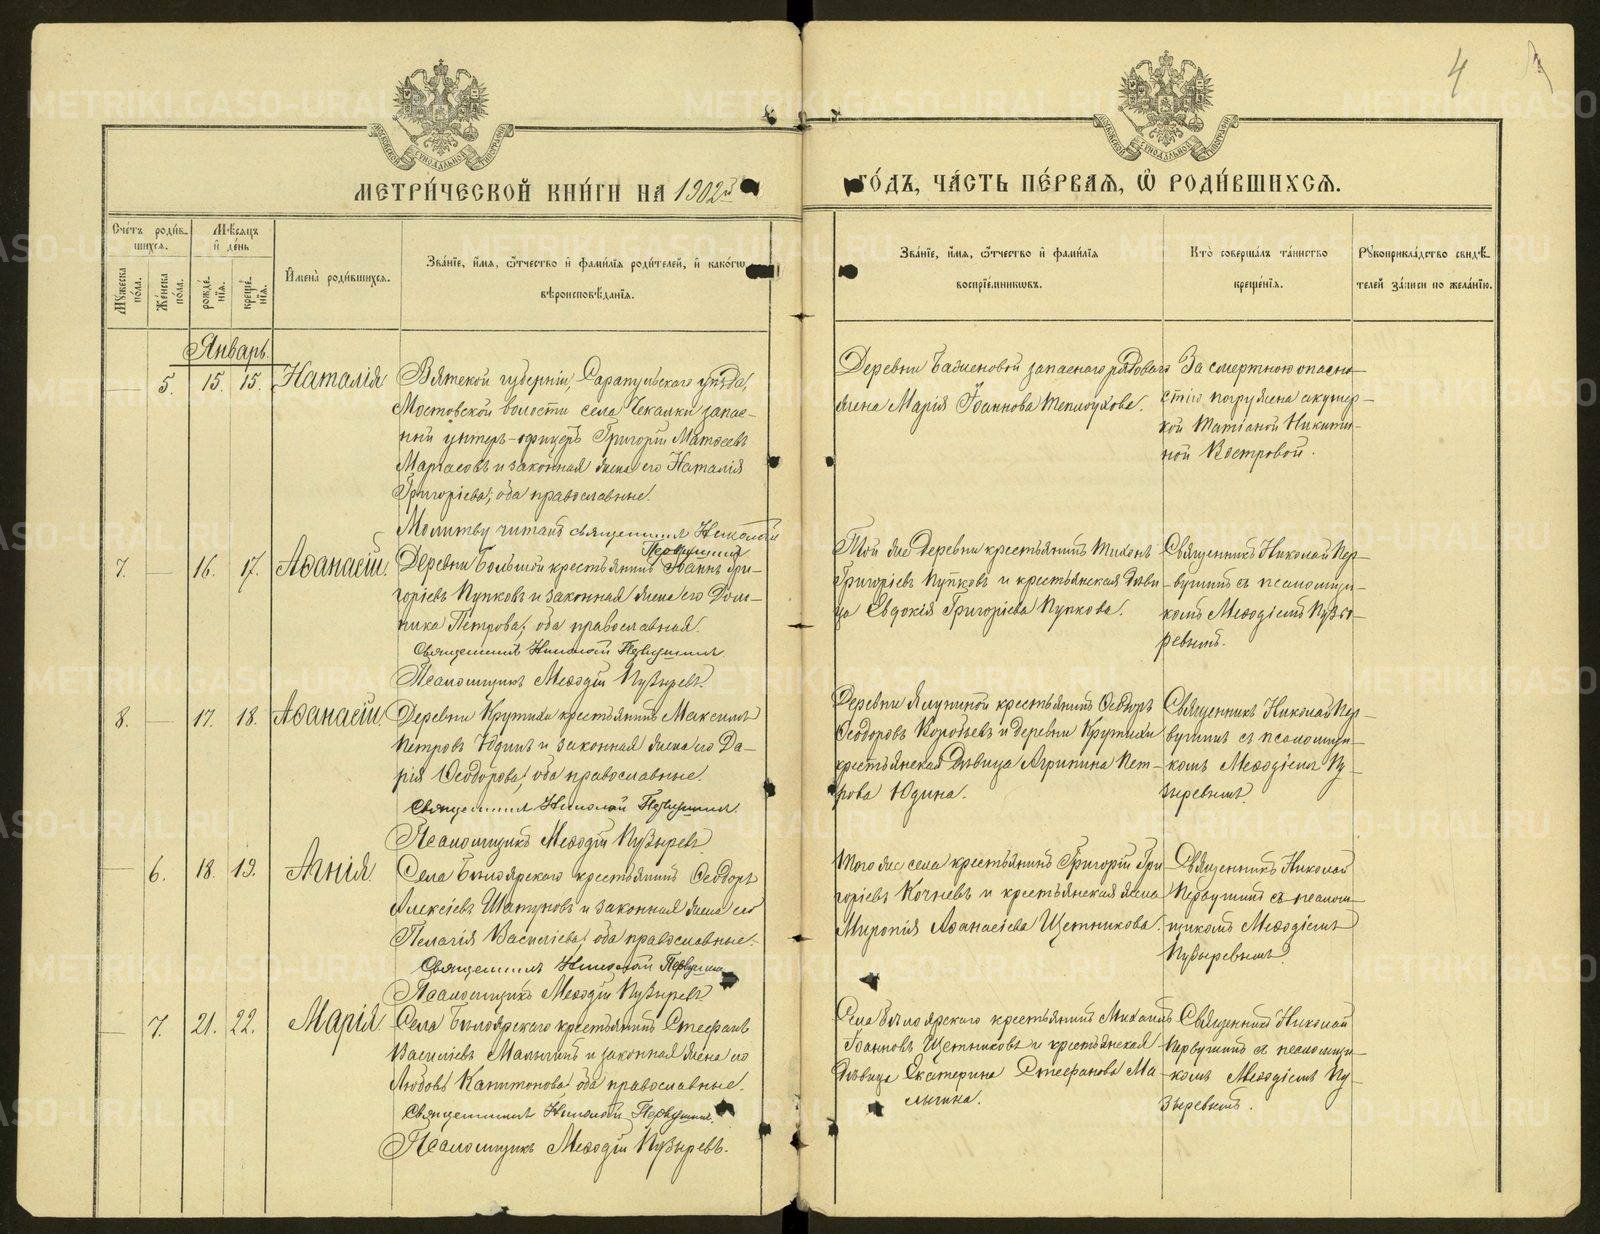 4
МЕТРИ́ЧЕСКОЙ КНИ́ГИ НА 1902й
ГО́ДЪ, ЧА́СТЬ ПЕ́РВАЯ, Ѡ҆ РОДИ́ВШИХСЯ.
Сче́тъ роди́в-
шихся.
Мѣ́сяцъ
и҆ де́нь
Мꙋ́жеска по́ла.
Же́нска по́ла.
рожде́-
нїя.
креще́-
нїя.
И҆мена̀ роди́вшихся.
Зва́нїе, и҆́мя, ѻ҆́тчество и҆ фами́лїя роди́телей, и҆ како́гѡ
вѣроисповѣ́данїя.
Зва́нїе, и҆́мя, ѻ҆́тчество и҆ фами́лїя
воспрїе́мникѡвъ.
Кто̀ соверша́лъ та́инство
креще́нїя.
Рꙋкоприкла́дство свидѣ́-
телей за́писи по жела́нїю.
Январь.
— 5. 15. 15. Наталія
Вятской губерніи, Сарапульскаго уѣзда,
Мостовской волости села Чекалки запас-
ный унтеръ-офицеръ Григорій Матѳеевъ
и законная жена его Наталія
Григорієва; оба православные.
Молитву читалъ священникъ Николай
Первушинъ
Деревни запаснаго рядоваго
жена Марія Іоаннова Теплоухова.
За смертною опасно-
стію погружена акушер-
кой Татіаной Никити-
ной Костровой.
7. — 16. 17. Аѳанасій.
Деревни Большой крестьянинъ Іоаннъ Гри-
горієвъ Пупковъ и законная жена его Дом-
ника Петрова; оба православная.
Священникъ Николай Первушинъ
Псаломщикъ Меѳодій Пузыревъ.
Той же деревни крестьянинъ Тихонъ
Григорієвъ Пупковъ и крестьянская дѣви-
ца Евдокія Григорієва Пупкова.
Священникъ Николай Пер-
вушинъ съ псаломщи-
комъ Меѳодіемъ Пузы-
ревымъ.
8. — 17. 18. Аѳанасій.
Деревни Крутихи крестьянинъ Максимъ
Петровъ Юдинъ и законная жена его Да-
рія Ѳеодорова; оба православные.
Священникъ Николай Первушинъ
Псаломщикъ Меѳодій Пузыревъ
Деревни крестьянинъ Ѳеодоръ
Ѳеодоровъ Коробьевъ и деревни Крутихи
крестьянская дѣвица Агрипина Пет-
рова Юдина.
Священникъ Николай Пер-
вушинъ съ псаломщи-
комъ Меѳодіемъ Пу-
зыревымъ.
— 6. 18. 19. Агнія
Села Бѣлоярскаго крестьянинъ Ѳеодоръ
Алексіевъ Шатуновъ и законная жена его
Пелагія Василіева; оба православные.
Священникъ Николай Первушинъ
Псаломщикъ Меѳодій Пузыревъ
Того же села крестьянинъ Григорій Гри
горіевъ Кочневъ и крестьянская жена
Миропія Аѳанасієва Щетникова.
Священникъ Николай
Первушинъ съ псалом-
щикомъ Меѳодіемъ
Пузыревымъ
— 7. 21. 22. Марія
Села Бѣлоярскаго крестьянинъ Стефанъ
Василіевъ Малыгинъ и законная жена его
Любовь Капитонова; оба православные.
Священникъ Николай Первушинъ.
Псаломщикъ Меѳодій Пузыревъ.
Села Бѣлоярскаго крестьянинъ Михаилъ
Іоанновъ Щетниковъ и крестьянская
дѣвица Екатерина Стефанова Ма-
лыгина.
Священникъ Николай
Первушинъ съ псаломщи-
комъ Меѳодіемъ Пу-
зыревымъ.
METRIKI.GASO-URAL.RU